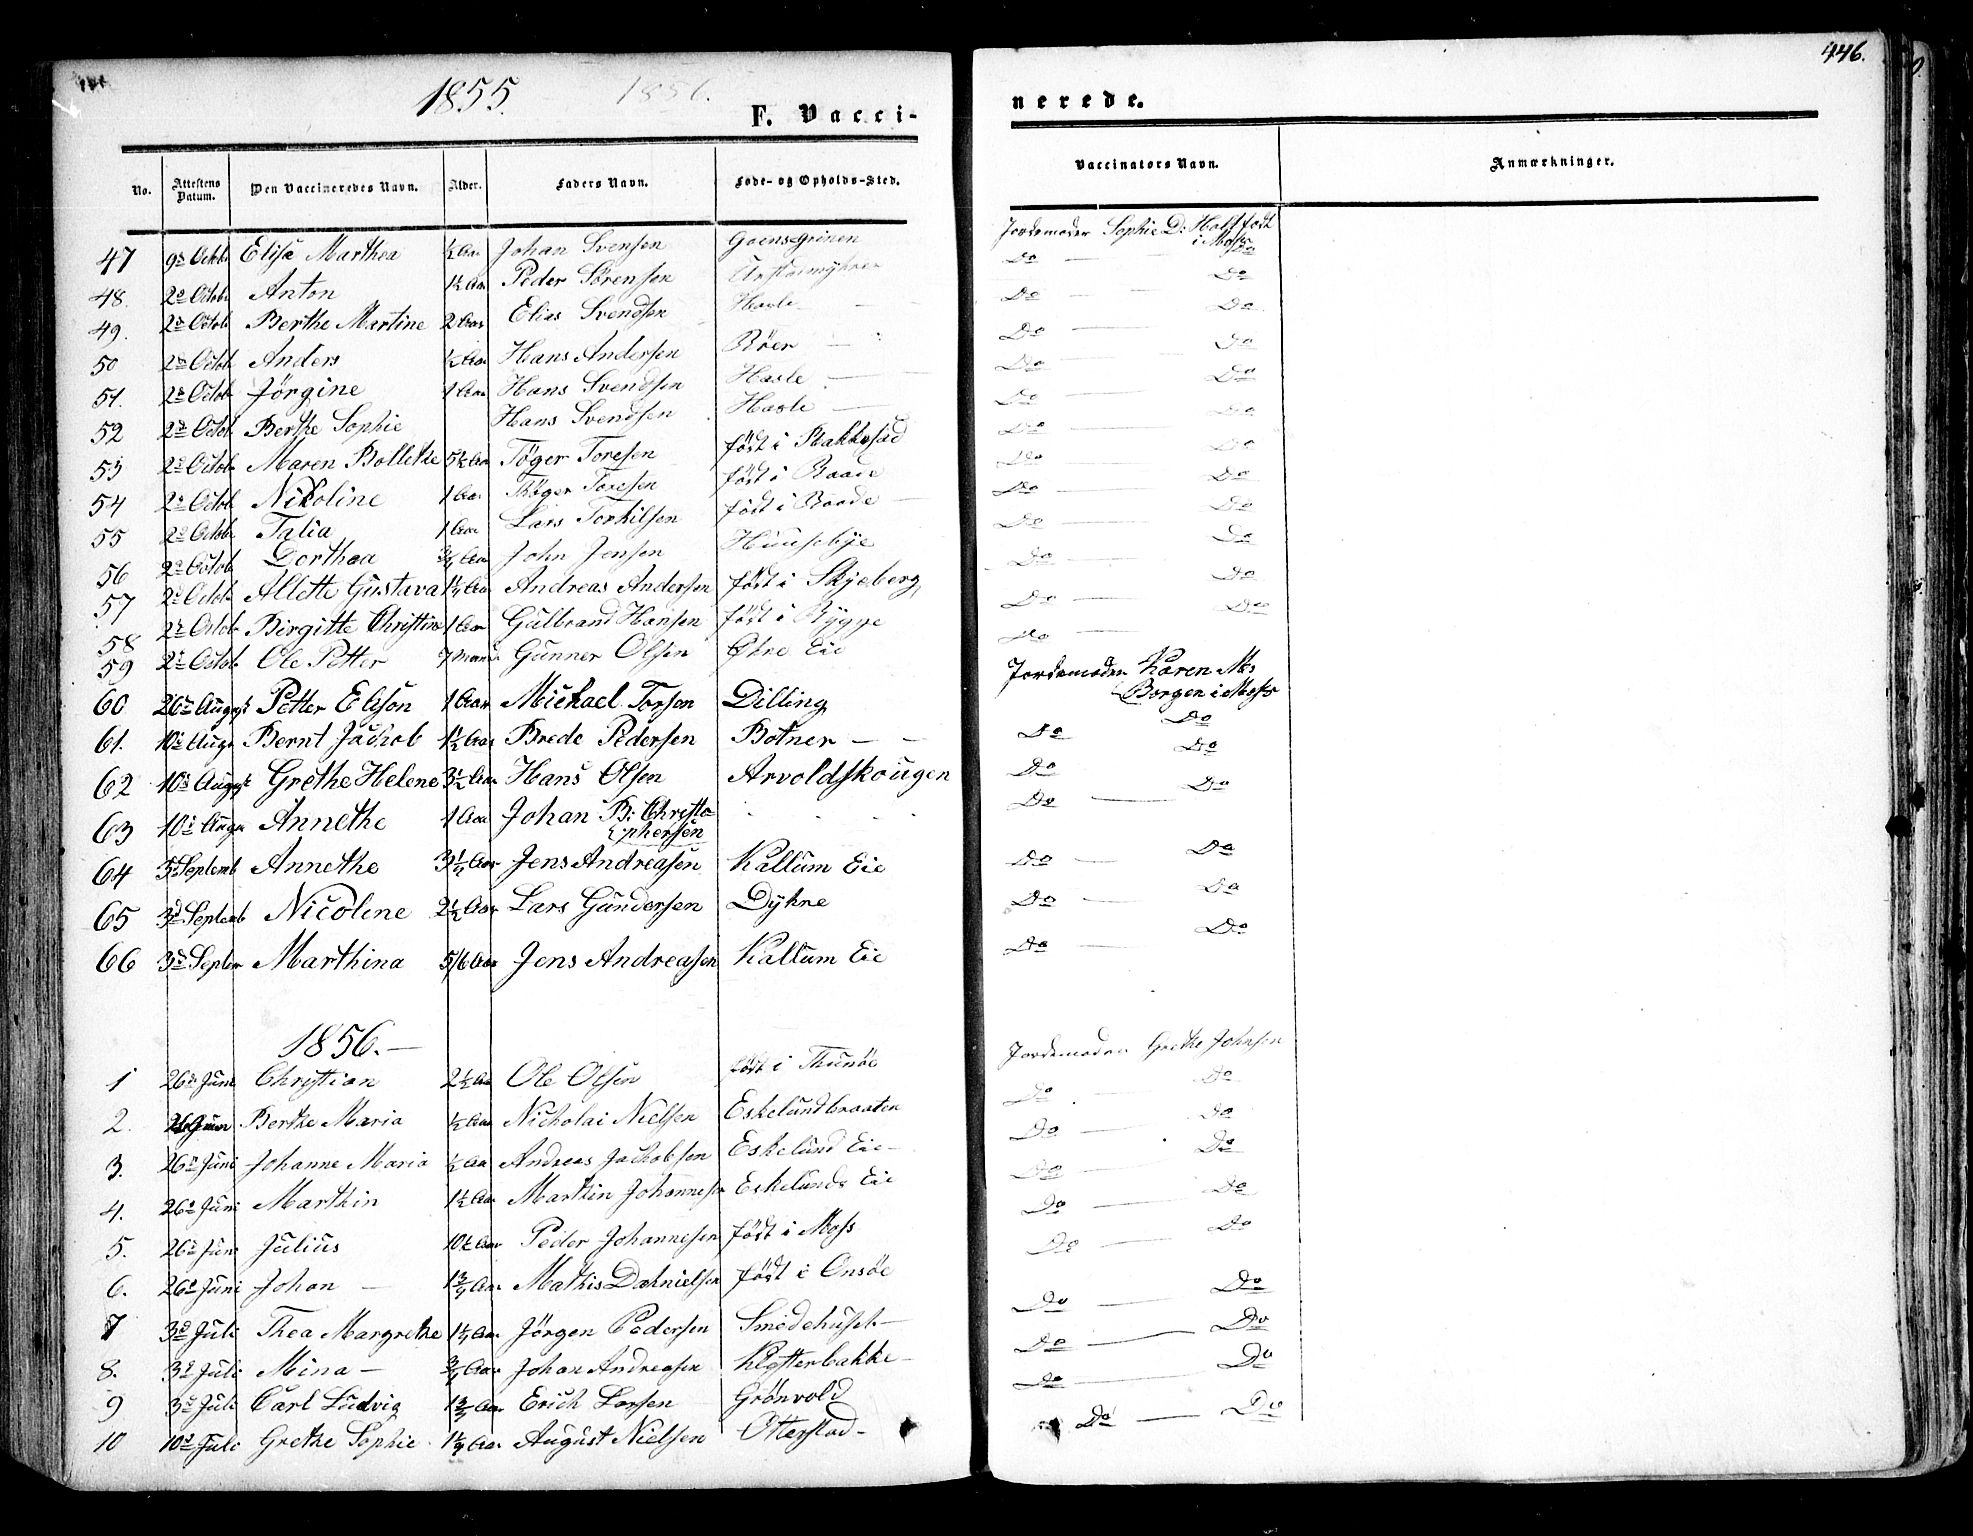 446.
1855. 1856.
F. Vacci-
nerede.
No. Attestens Datum. Den Vaccineredes Navn. Alder. Faders Navn. Føde- og Opholds-Sted. Vaccinators Navn. Anmærkninger.
47 9de Octbr Elise Marthea ½ Aar Johan Svensen Jordemoder Sophie D: Holst født
i Moss
48. 2de Octob Anton 1½ Aar Peder Sørensen Do — Do
49. 2de Octob Berthe Martine 2 Aar Elias Svendsen Hasle Do — Do
50 2de Octob Anders ½ Aar Hans Andersen Röer — Do — Do
51. 2de Octob Jørgine 1 Aar Hans Svendsen Hasle — Do — Do
52 2de Octob Berthe Sophie Hans Svendsen Hasle — Do — Do
53 2de Octob Maren Bollethe 5½ Aar Töger Toresen født i Rakkestad Do — Do
54 2de Octob Nikoline 1 Aar Töger Toresen født i Raade Do — Do
55 2de Octob Talia 1 Aar Lars Torkilsen født i Raade — Do — Do
56 2de Octob Dorthea ¾ Aar John Jensen Huusebye Do — Do
57 2de Octob Allette Gustava 1¼ Aar Andreas Andersen født i Skjeberg Do — Do
58 2de Octob Birgitte Christine 1 Aar Gulbrand Hansen født i Rygge Do — Do
59 2de Octob Ole Petter 7 Maan Gunner Olsen Øhre Eie Do — Do
60 26de August Petter Elison 1 Aar Michael Torsen Dilling Jordemoder Karen Ms
Borgen i Moss
61. 10de Augu Bernt Jachob 1½ Aar Brede Pedersen Botner — — Do Do
62 10de August Grethe Helene 3½ Aar Hans Olsen Arvoldskougen Do Do
63 10de Augu Annethe 1 Aar Johan B: Christo-
phersen Do — Do
64 3de Septemb Annethe 3½ Aar Jens Andreasen Kallum Eie Do — Do
65 3de Septemb Nicoline 2½ Aar Lars Gundersen Dyhre Do — Do
66 3de Septem Marthina 5/6 Aar Jens Andreasen Kallum Eie Do — Do
1856. —
1 26de Juni Christian 2½ Aar Ole Olsen født i Thunöe Jordemoder Grethe Johnsen
2. 26 Juni Berthe Maria ½ Aar Nicholai Nielsen Eskelundbraaten Do — Do
3. 26de Juni Johanne Maria ½ Aar Andreas Jachobsen Eskelund Eie — Do — Do
4. 26de Juni Marthin 1½ Aar Marthin Johannesen Eskelunds Eie Do — Do
5. 26de Juni Julius 10½ Aar Peder Johannesen født i Moss Do — Do
6. 26de Juni Johan — 1¾ Aar Mathis Dahnielsen født i Onsöe Do — Do
7 3de Juli Thea Margrethe 1¼ Aar Jörgen Pedersen Smedehuset — Do — Do
8. 3de Juli Mina — ¾ Aar Johan Andreasen Klytterbakke — Do — Do
9 3de Juli Carl Ludvig 1¾ Aar Erich Larsen Grönvold Do — Do
10 10de Juli Grethe Sophie August Nielsen Otterstad — Do — Do